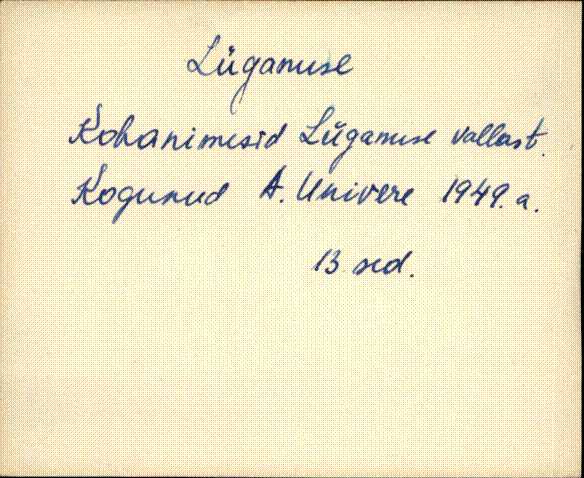 Lüganuse
Kohanimesid Lüganuse vallast.
Kogunud A. Univere 1949. a.
13 sed.